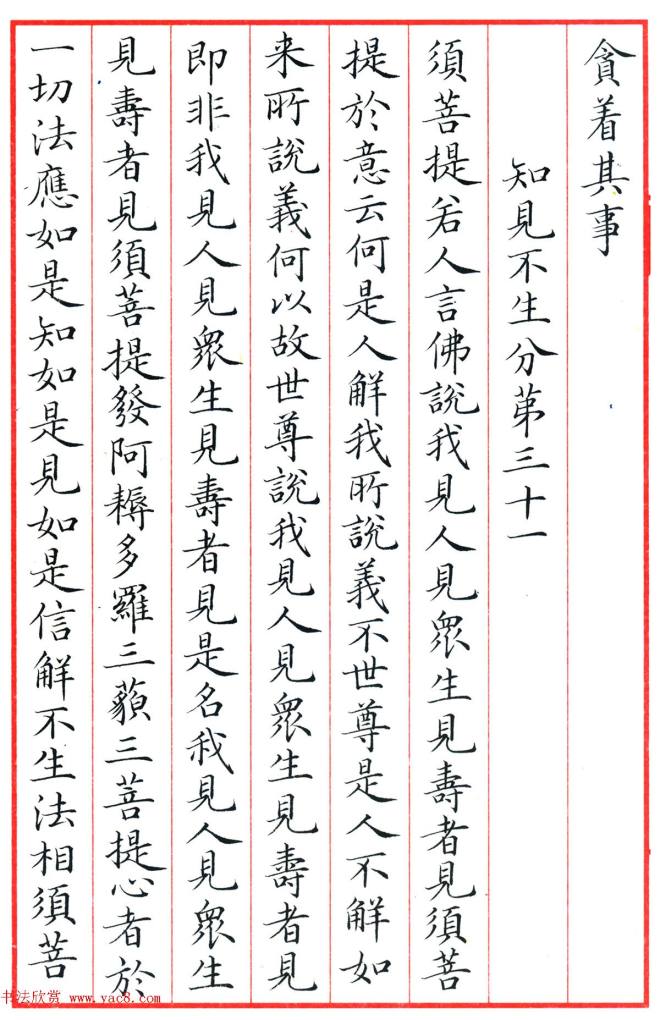 貪着其事
知見不生分苐三十一
須菩提若人言佛説我見人見眾生見壽者見須菩
提於意云何是人解我所説義不世尊是人不解如
来所説義何以故世尊説我見人見眾生見壽者見
即非我見人見眾生見壽者見是名我見人見眾生
見壽者見須菩提發阿耨多羅三藐三菩提心者於
一切法應如是知如是見如是信解不生法相須菩
书法欣赏 www.yac8.com